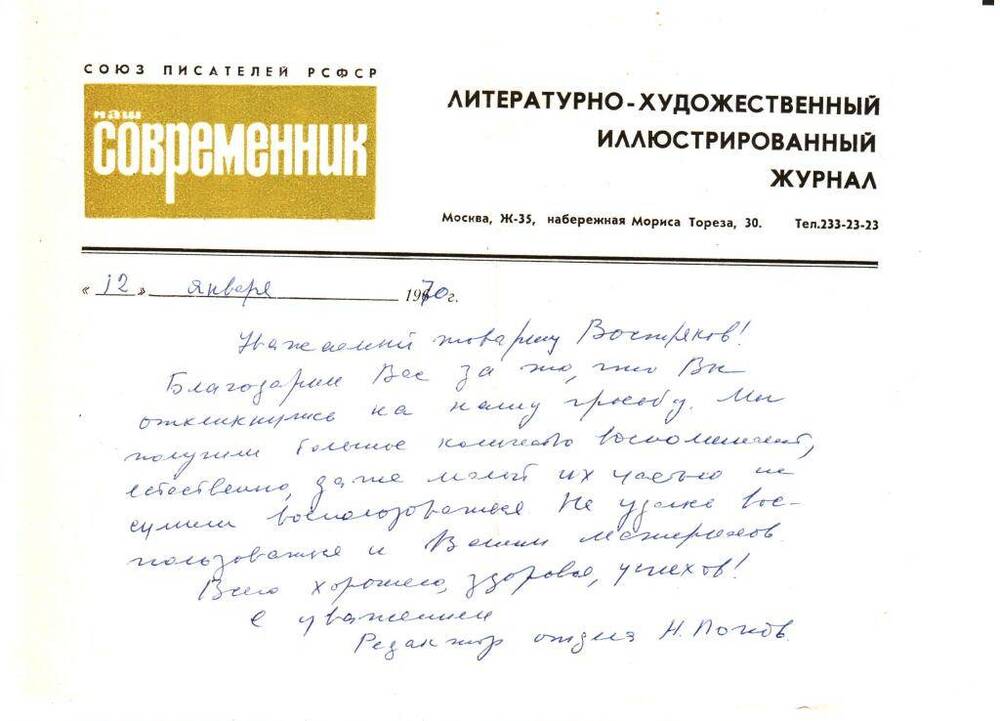 СОЮЗ ПИСАТЕЛЕЙ РСФСР
наш
современник
ЛИТЕРАТУРНО-ХУДОЖЕСТВЕННЫЙ
ИЛЛЮСТРИРОВАННЫЙ
ЖУРНАЛ
Москва, Ж-35, набережная Мориса Тореза, 30. Тел.233-23-23
«12» января 1970г.
Уважаемый товарищ Востряков!
Благодарим Вас за то, что Вы
откликнулись на нашу просьбу. Мы
получили большое количество воспоминаний,
естественно, даже малой их частью не
сумели воспользоваться Не удалось вос-
пользоваться и Вашим материалом.
Всего хорошего, здоровья, успехов!
С уважением
Редактор отдела Н.